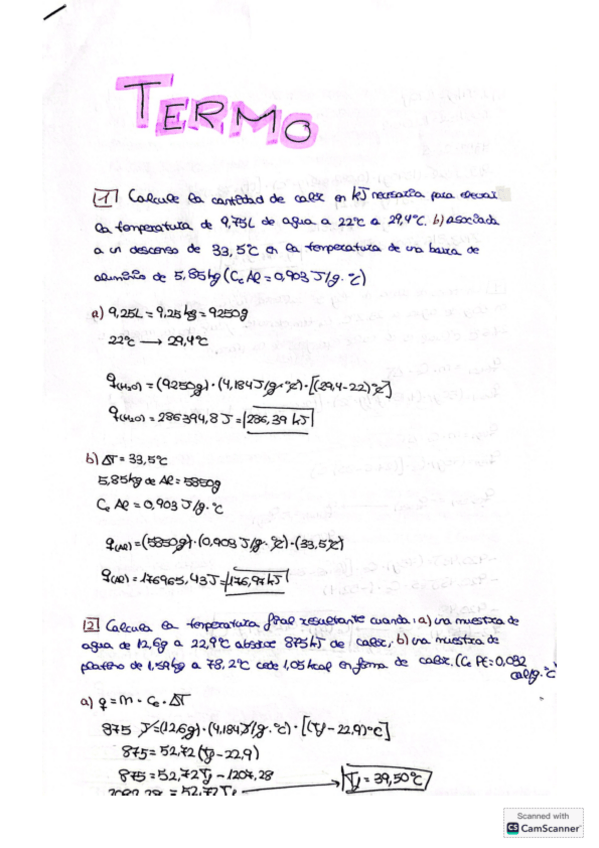 TERMO
1 Calcule la cantidad de calor en kJ necesaria para elevar
la temperatura de 9,75L de agua a 22°C a 29,4°C. b) asociada
a un descenso de 33,5°C en la temperatura de una barra de
aluminio de 5,85kg (Ce Al = 0,903 J/g·°C)
a) 9,25L = 9,25kg = 9250g
22°C → 29,4°C
q(H2O) = (9250g)·(4,184J/g·°C)·[(29,4-22)°C]
q(H2O) = 286394,8 J = 286,39 kJ
b) ΔT = 33,5°C
5,85kg de Al = 5850g
Ce Al = 0,903 J/g·°C
q(Al) = (5850g)·(0,903 J/g·°C)·(33,5°C)
q(Al) = 176965,43 J = 176,97 kJ
2 Calcula la temperatura final resultante cuando: a) una muestra de
agua de 12,6g a 22,9°C absorbe 875kJ de calor, b) una muestra de
platino de 1,59kg a 78,2°C cede 1,05kcal en forma de calor. (Ce Pt = 0,032
cal/g·°C
a) q = m · Ce · ΔT
875 J = (12,6g)·(4,184J/g·°C)·[(Tf - 22,9)°C]
875 = 52,72 (Tf - 22,9)
875 = 52,72 Tf - 1207,28
2082,28 = 52,72 Tf → Tf = 39,50°C
Scanned with
CS CamScanner